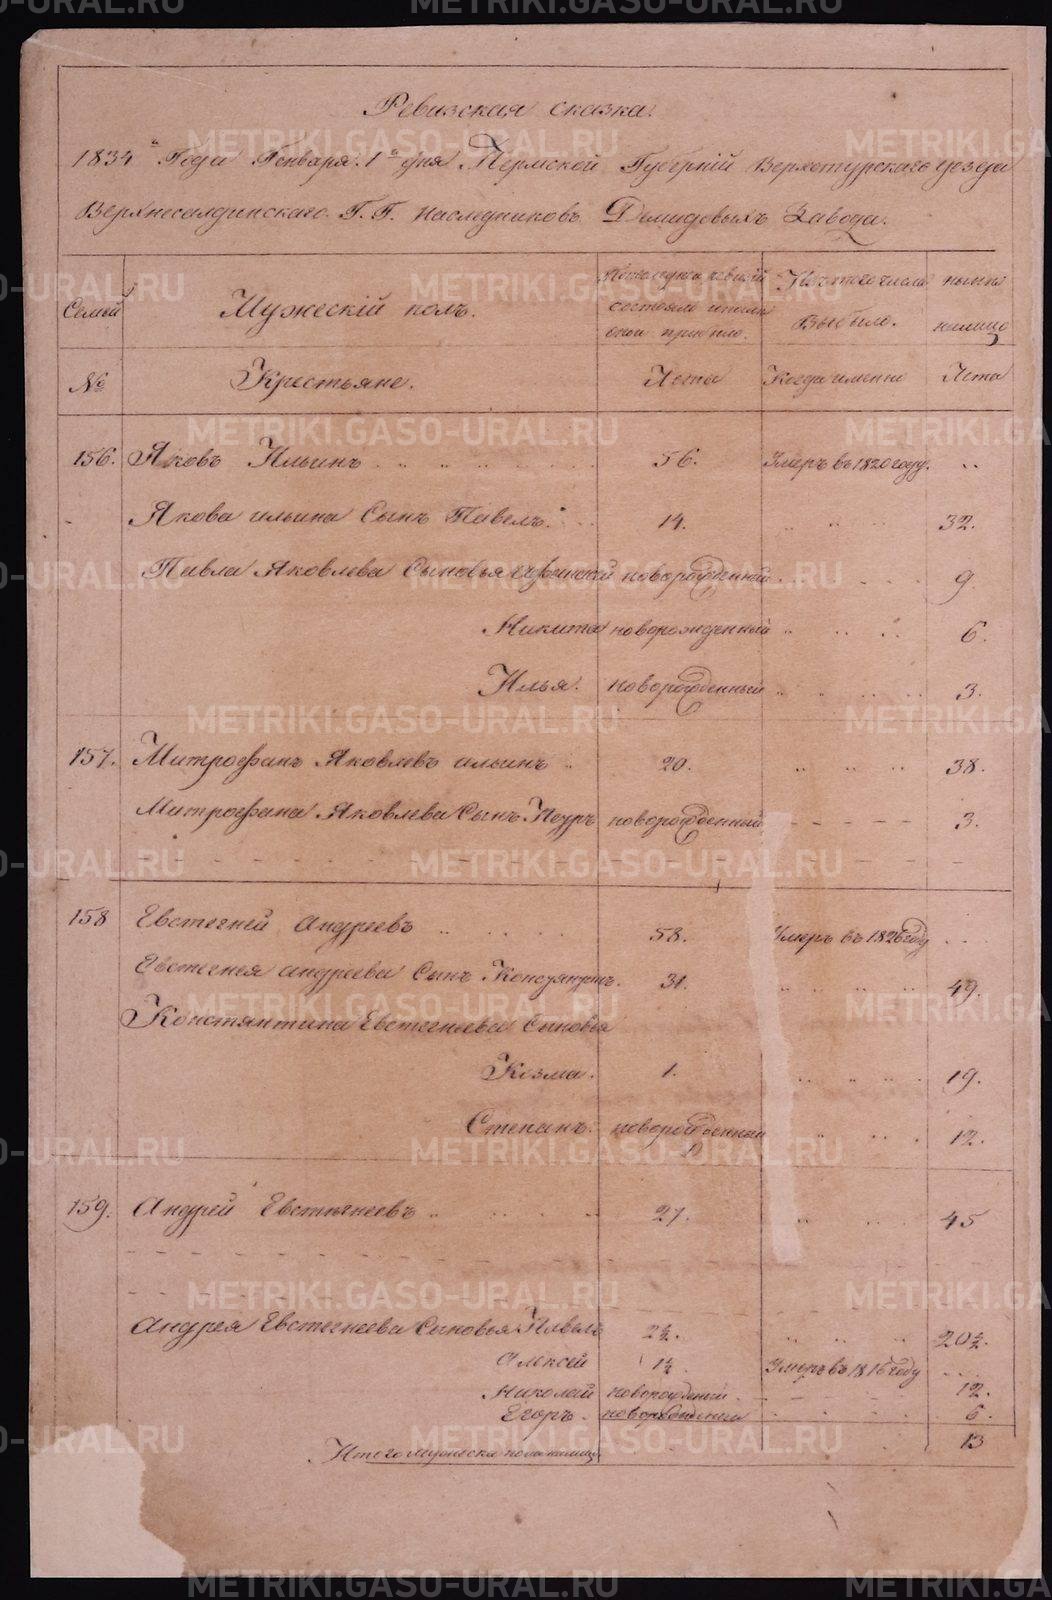 Ревизская сказка.
1834 го Года Января 1 го дня Пермской Губерніи Верхотурскаго уезда
Верхнесалдинскаго Г. Г. наследниковъ Демидовыхъ Завода.
Семьи Мужескій полъ. По последней ревизіи состояло и после оной прибыло. Изъ того числа Выбыло. ныне на лицо
№ Крестьяне. Лета Когда именно Лета
156. Яковъ Ильинъ 56. Умеръ въ 1820 году.
Якова ильина Сынъ Павелъ. 14. 32.
Павла Яковлева Сыновья новорожденный 9.
Никита новорожденный 6.
Илья. новорожденный 3.
157. Митрофанъ Яковлевъ ильинъ 20. 38.
Митрофана Яковлева Сынъ новорожденный 3.
158 Евстегней андреевъ 58. Умеръ въ 1826 году
Евстегнея андреева Сынъ Констянтинъ. 31. 49.
Констянтина Евстегнеева Сыновья
Козма. 1. 19.
Степанъ. новорожденный 12.
159. Андрей Евстегнеевъ 27. 45
Андрея Евстегнеева Сыновья Павелъ 2½. 20½.
Алексей 1½. Умеръ въ 1816 году
Николай новорожденный 12.
Егоръ. новорожденный 6.
Итого мужеска пола налицо 13
METRIKI.GASO-URAL.RU